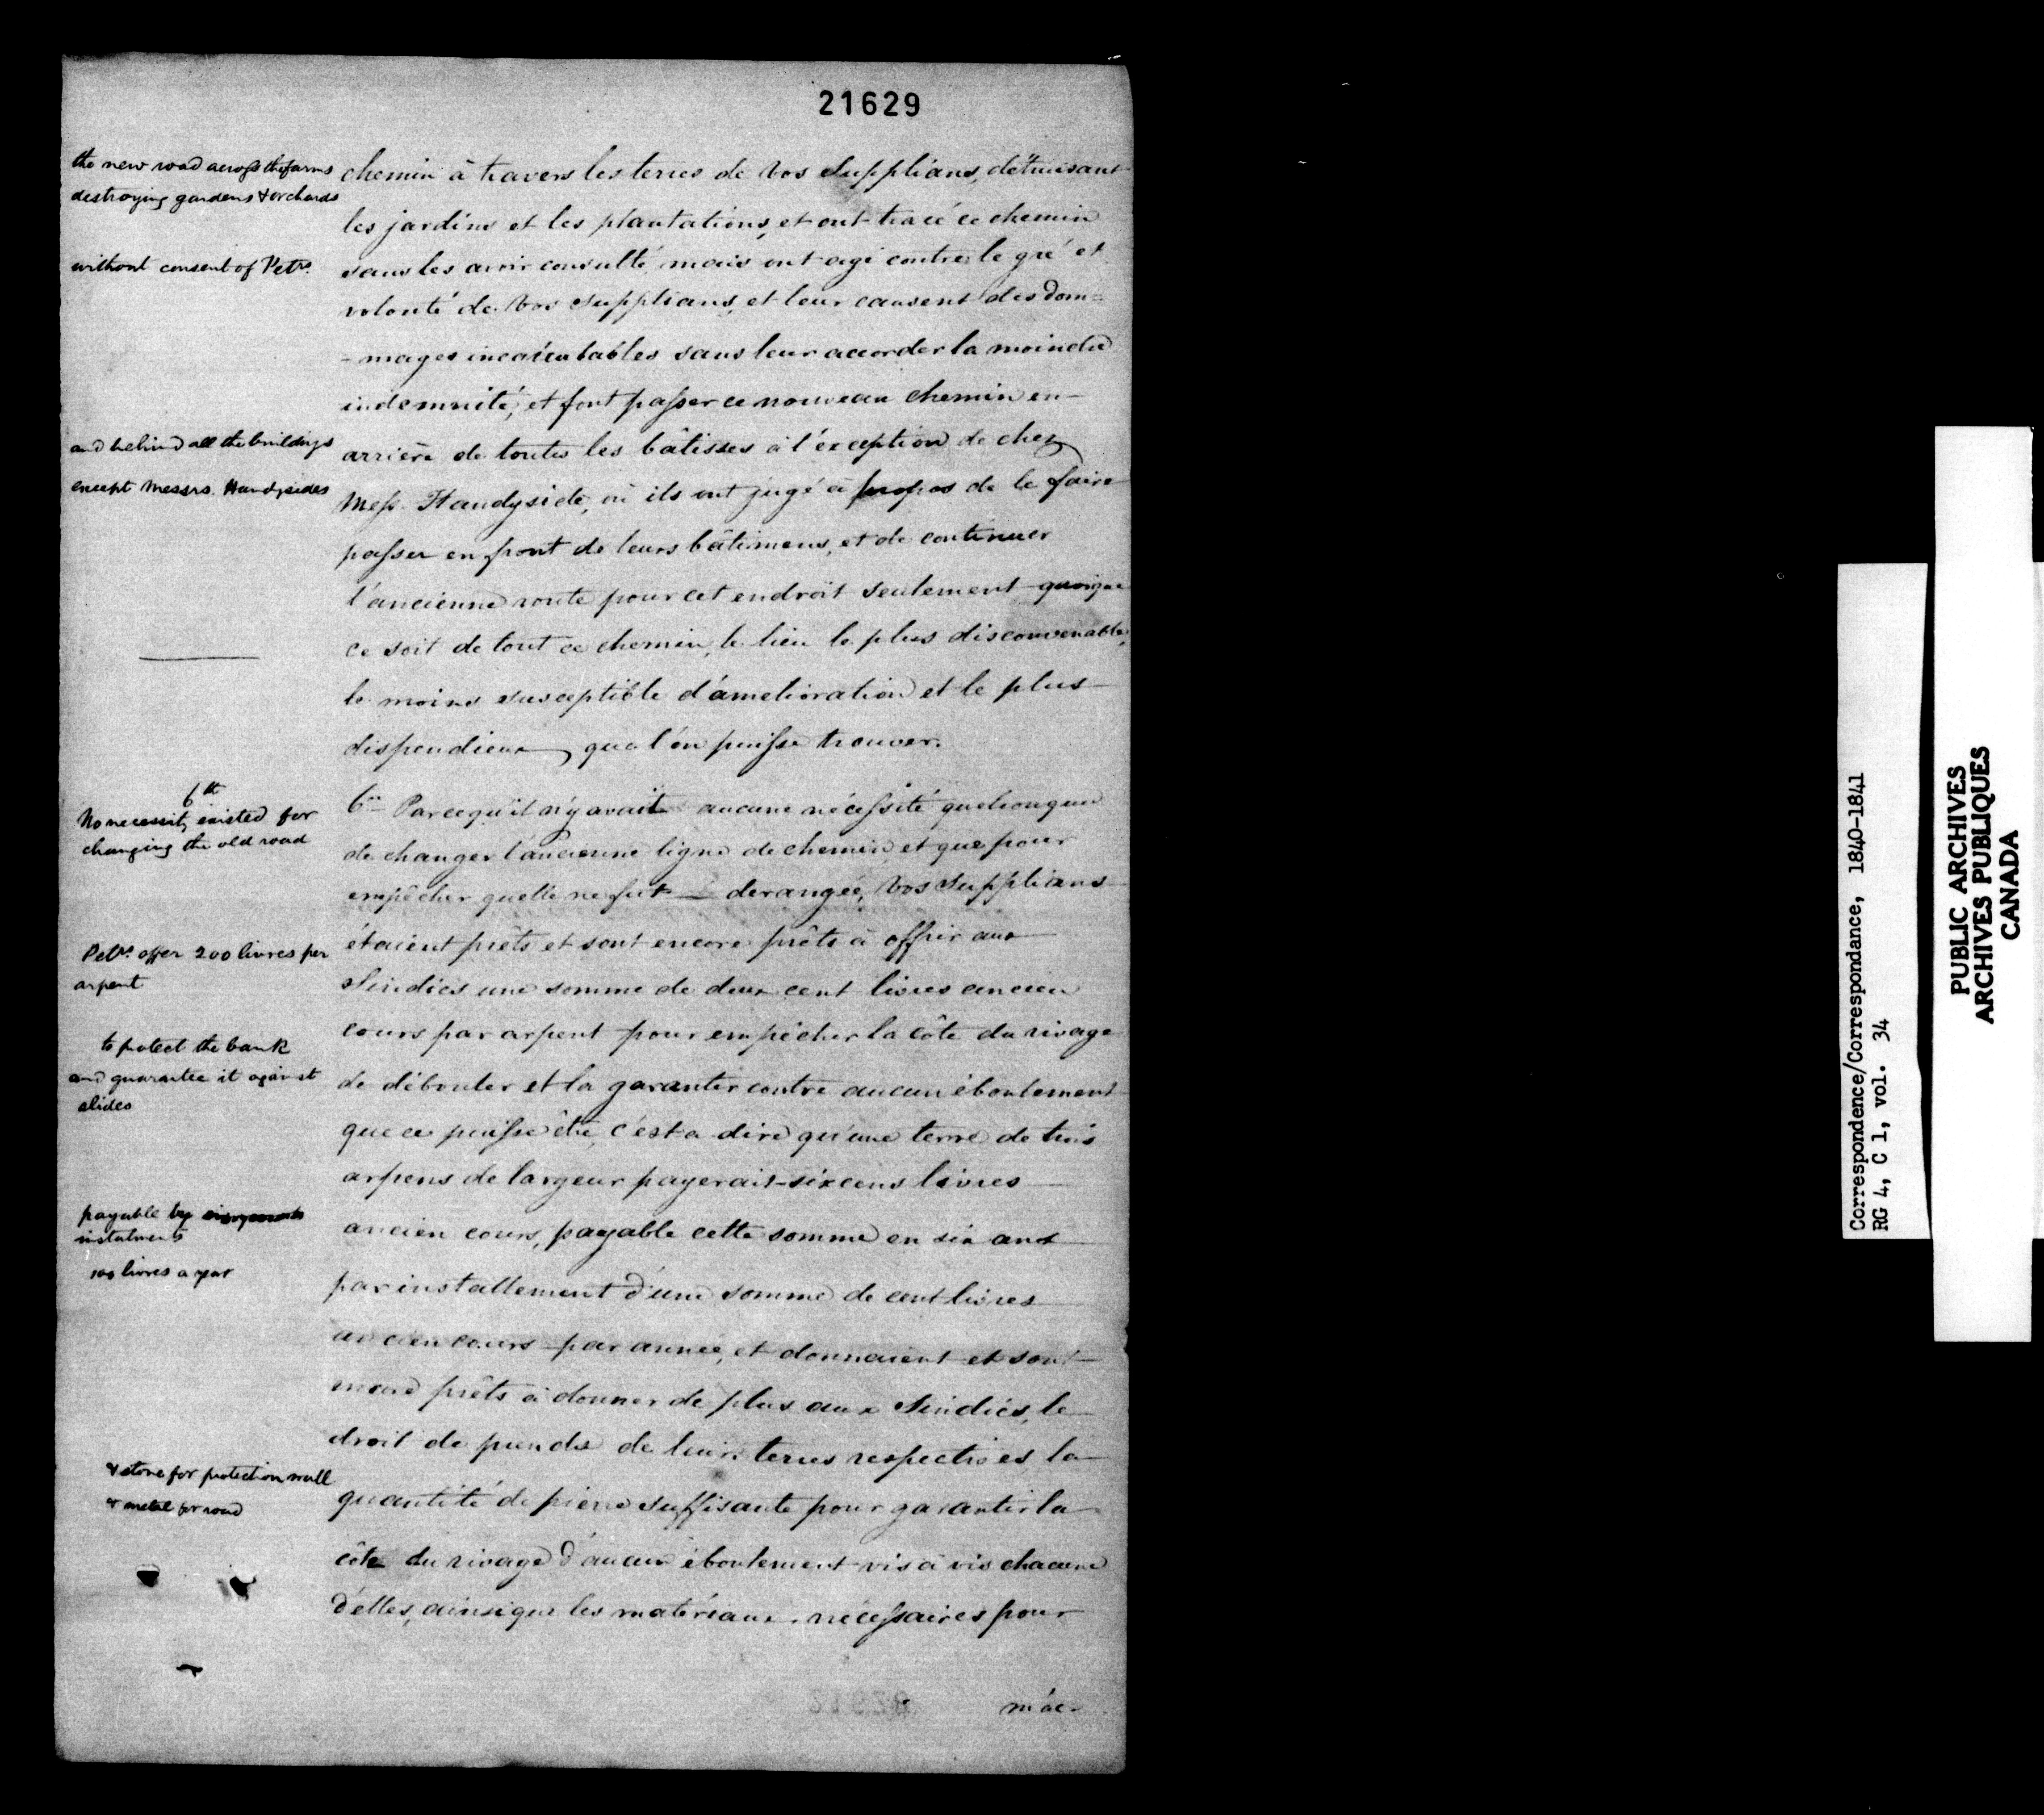 21629
the new road across the farms
destroying gardens & orchards
without consent of Petrs.
and behind all the buildings
except Messrs. Handysides
6th
No necessity existed for
changing the old road
Petrs. offer 200 livres per
arpent
to protect the bank
and guarantee it against
slides
payable by
instalments
100 livres a year
& stone for protection wall
& metal for road
chemin à travers les terres de Vos Supplians, détruisant
les jardins et les plantations, et ont tracé ce chemin
sans les avoir consulté, mais ont agi contre le gré et
volonté de Vos Supplians, et leur causent des dom=
-mages incalculables sans leur accorder la moindre
indemnité, et font passer ce nouveau chemin en
arrière de toutes les bâtisses à l'exception de chez
Mess. Handyside, où ils ont jugé à propos de le faire
passer en front de leurs bâtimens, et de continuer
l'ancienne route pour cet endroit seulement quoique
ce soit de tout ce chemin, le lieu le plus disconvenable,
le moins susceptible d'amelioration et le plus
dispendieux, que l'on puisse trouver.
6o. Parcequ'il n'y avait aucune nécessité quelconque
de changer l'ancienne ligne de chemin, et que pour
empêcher quelle ne fut derangée, Vos Supplians
étaient prêts et sont encore prêts à offrir aux
Sindics une somme de deux cent livres ancien
cours par arpent pour empécher la côte du rivage
de débouler et la garantir contre aucun éboulement
que ce puisse être, c'est a dire qu'une terre de trois
arpens de largeur payerait six cens livres
ancien cours, payable cette somme en six ans
par installement d'une somme de cent livres
ancien cours par année, et donnaient et sont
encore prêts à donner de plus aux Sindics, le
droit de prendre de leurs terres respectives la
quantité de pierre suffisante pour garantir la
côte du rivage d'aucun éboulement vis à vis chacune
d'elles, ainsi que les matériaux nécessaires pour
mac-
Correspondence/Correspondance, 1840-1841
RG 4, C 1, vol. 34
PUBLIC ARCHIVES
ARCHIVES PUBLIQUES
CANADA